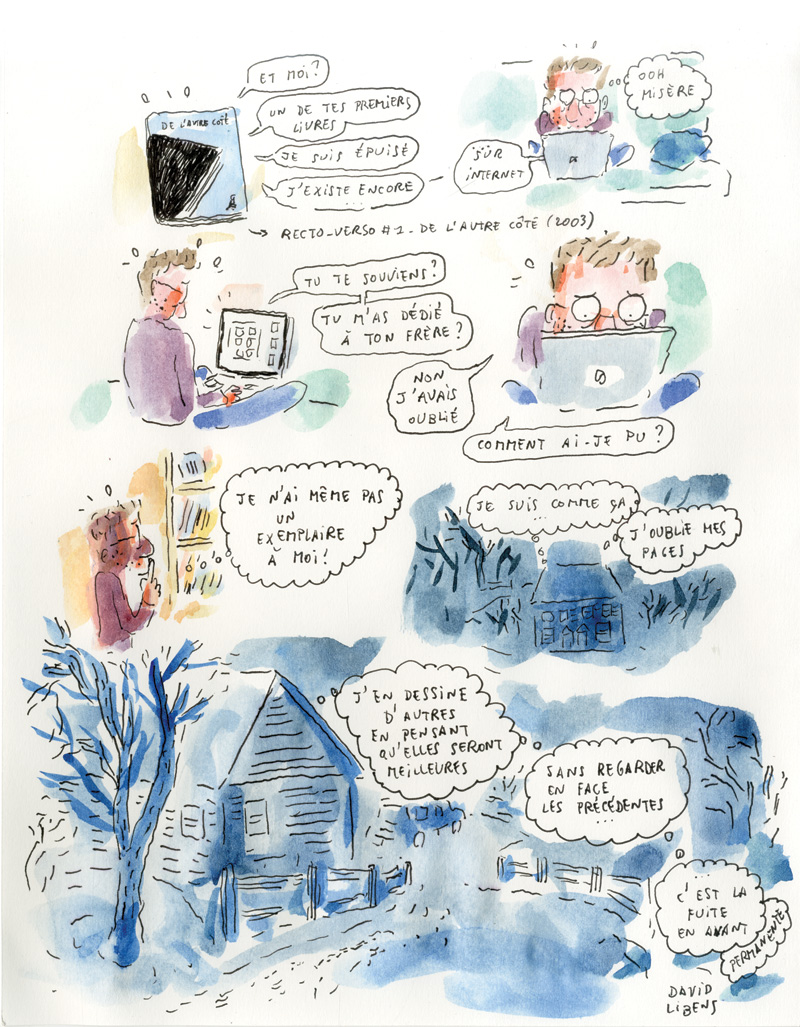 ET MOI?
UN DE TES PREMIERS
LIVRES
JE SUIS ÉPUISÉ
J'EXISTE ENCORE
...
DE L'AUTRE CÔTÉ
OOH
MISÈRE
SUR
INTERNET
RECTO-VERSO #1 - DE L'AUTRE CÔTÉ (2003)
TU TE SOUVIENS?
TU M'AS DÉDIÉ
À TON FRÈRE?
NON
J'AVAIS
OUBLIÉ
COMMENT AI-JE PU?
JE N'AI MÊME PAS
UN
EXEMPLAIRE
À MOI!
JE SUIS COMME ÇA
...
J'OUBLIE MES
PAGES
J'EN DESSINE
D'AUTRES
EN PENSANT
QU'ELLES SERONT
MEILLEURES
SANS REGARDER
EN FACE
LES PRÉCÉDENTES
...
...
C'EST LA
FUITE
EN AVANT
PERMANENTE
DAVID
LIBENS